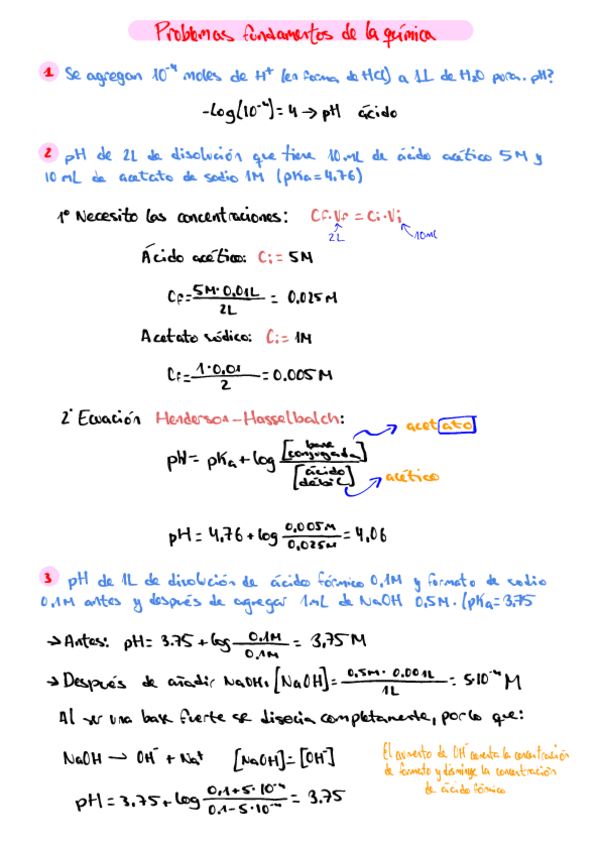 Problemas fundamentos de la química
1 Se agregan 10⁻⁴ moles de H⁺ (en forma de HCl) a 1L de H₂O pura. pH?
-Log(10⁻⁴) = 4 → pH ácido
2 pH de 2L de disolución que tiene 10 mL de ácido acético 5M y
10 mL de acetato de sodio 1M (pKa=4.76)
1º Necesito las concentraciones: Cf·Vf = Ci·Vi
2L 10ml
Ácido acético: Ci = 5M
Cf = 5M·0.01L / 2L = 0.025M
Acetato sódico: Ci = 1M
Cf = 1·0.01 / 2 = 0.005M
2º Ecuación Henderson-Hasselbalch:
pH = pKa + log [base conjugada] / [ácido débil]
acetato
acético
pH = 4.76 + log 0.005M / 0.025M = 4.06
3 pH de 1L de disolución de ácido fórmico 0.1M y formato de sodio
0.1M antes y después de agregar 1mL de NaOH 0.5M. (pKa=3.75
→ Antes: pH = 3.75 + log 0.1M / 0.1M = 3,75 M
→ Después de añadir NaOH: [NaOH] = 0.5M·0.001L / 1L = 5·10⁻⁴ M
Al ser una base fuerte se disocia completamente, por lo que:
NaOH → OH⁻ + Na⁺ [NaOH] = [OH⁻]
pH = 3.75 + log 0,1+5·10⁻⁴ / 0.1-5·10⁻⁴ = 3.75
El aumento de OH⁻ aumenta la concentración
de formato y disminuye la concentración
de ácido fórmico